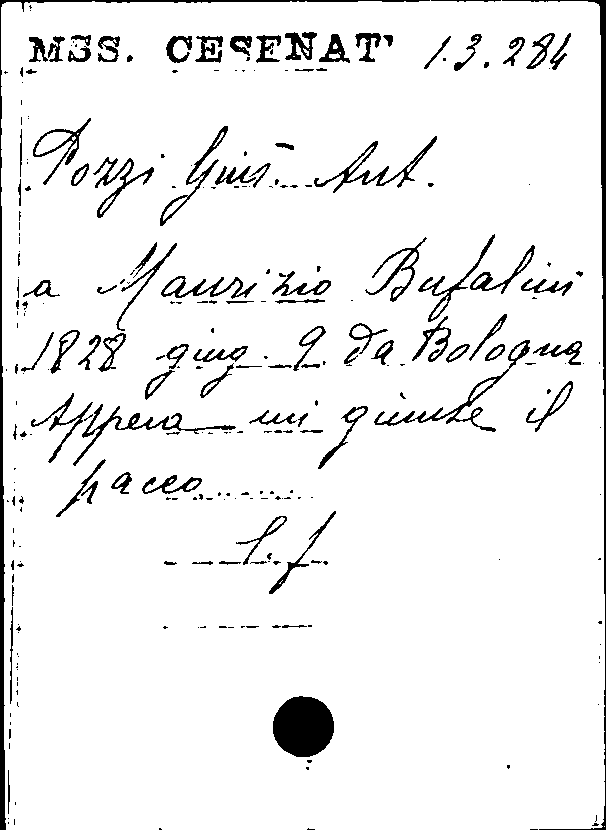 MSS. CESENAT' 1.3.284
Pozzi Gius. Ant.
a Maurizio Bufalini
1828 giug. 9 da Bologna
Appena mi giunse il
pacco........
l. f.